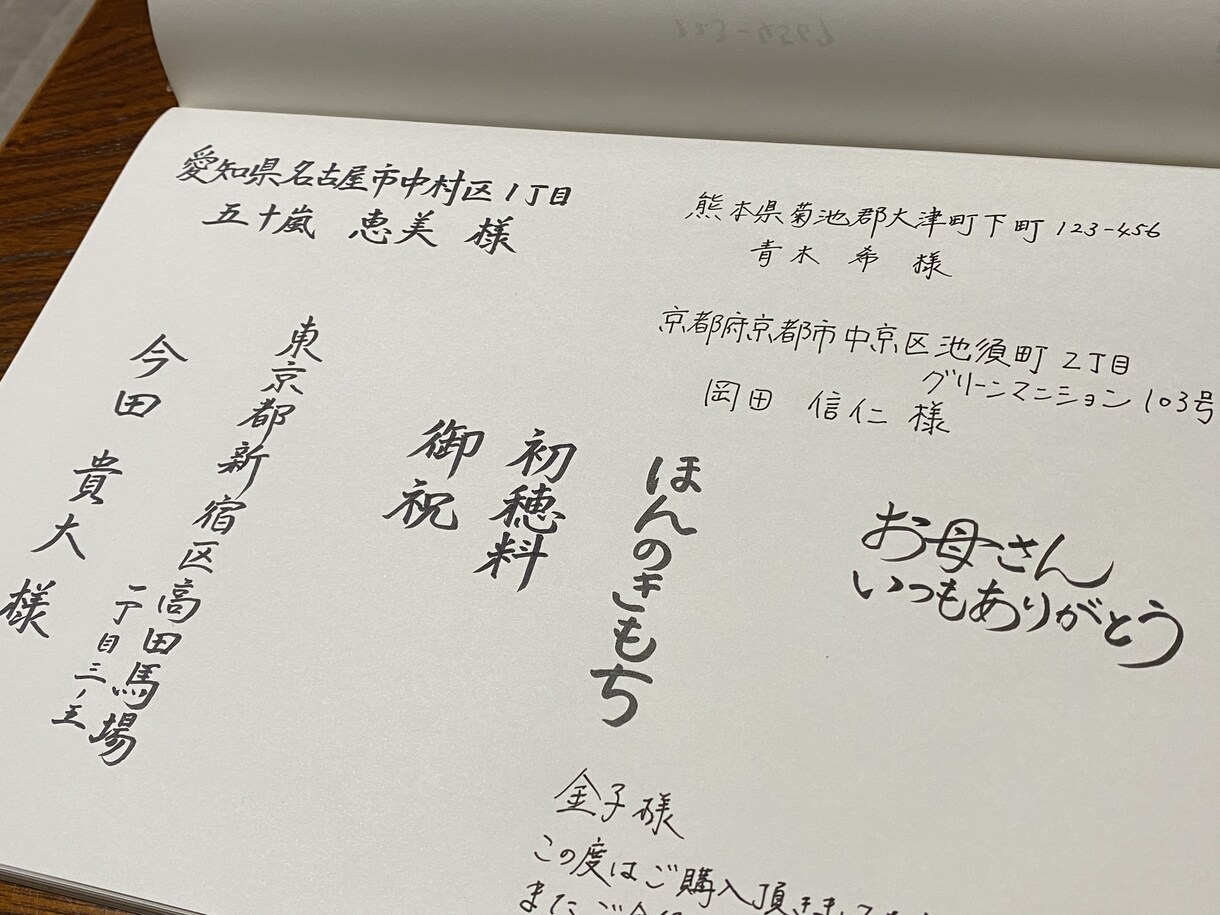 愛知県名古屋市中村区1丁目
五十嵐 恵美 様
熊本県菊池郡大津町下町123-456
青木 希 様
京都府京都市中京区池須町2丁目
グリーンマンション103号
岡田 信仁 様
東京都新宿区高田馬場
一丁目三ノ五
今田 貴大 様
初穂料
御祝
ほんのきもち
お母さん
いつもありがとう
金子様
この度はご購入頂きまして
またご